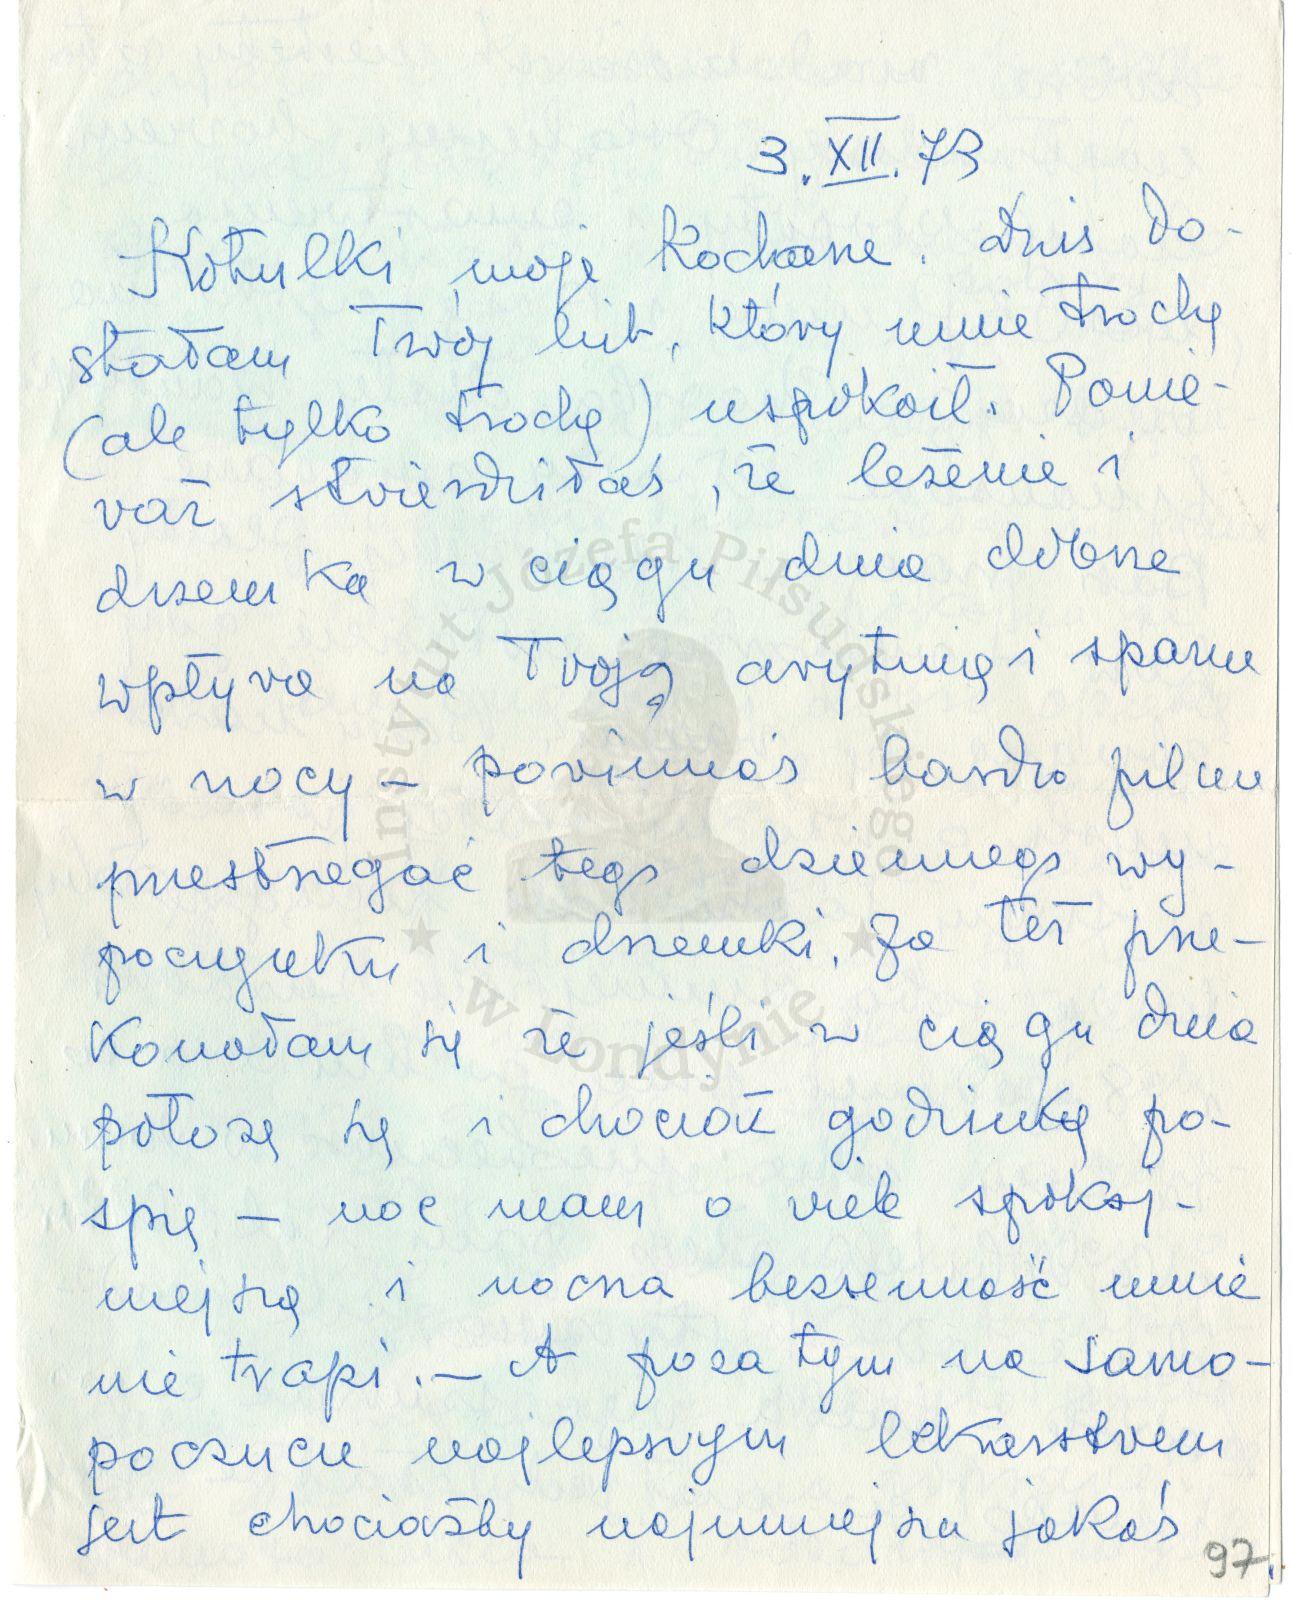 3.XII.73
Kotulki moje Kochane. Dziś do-
stałam Twój list, który mnie trochę
(ale tylko trochę) uspokoił. Ponie-
waż stwierdziłaś, że leżenie i
drzemka w ciągu dnia dobrze
wpływa na Twoją arytmię i spanie
w nocy – powinnaś bardzo pilnie
przestrzegać tego dziennego wy-
poczynku i drzemki. Ja też prze-
konałam się że jeśli w ciągu dnia
położę się i chociaż godzinkę po-
śpię – noc mam o wiele spokoj-
niejszą i nocna bezsenność mnie
nie trapi. – A poza tym na samo-
poczucie najlepszym lekarstwem
jest chociażby najmniejsza jakaś
97.
Instytut Józefa Piłsudskiego
w Londynie